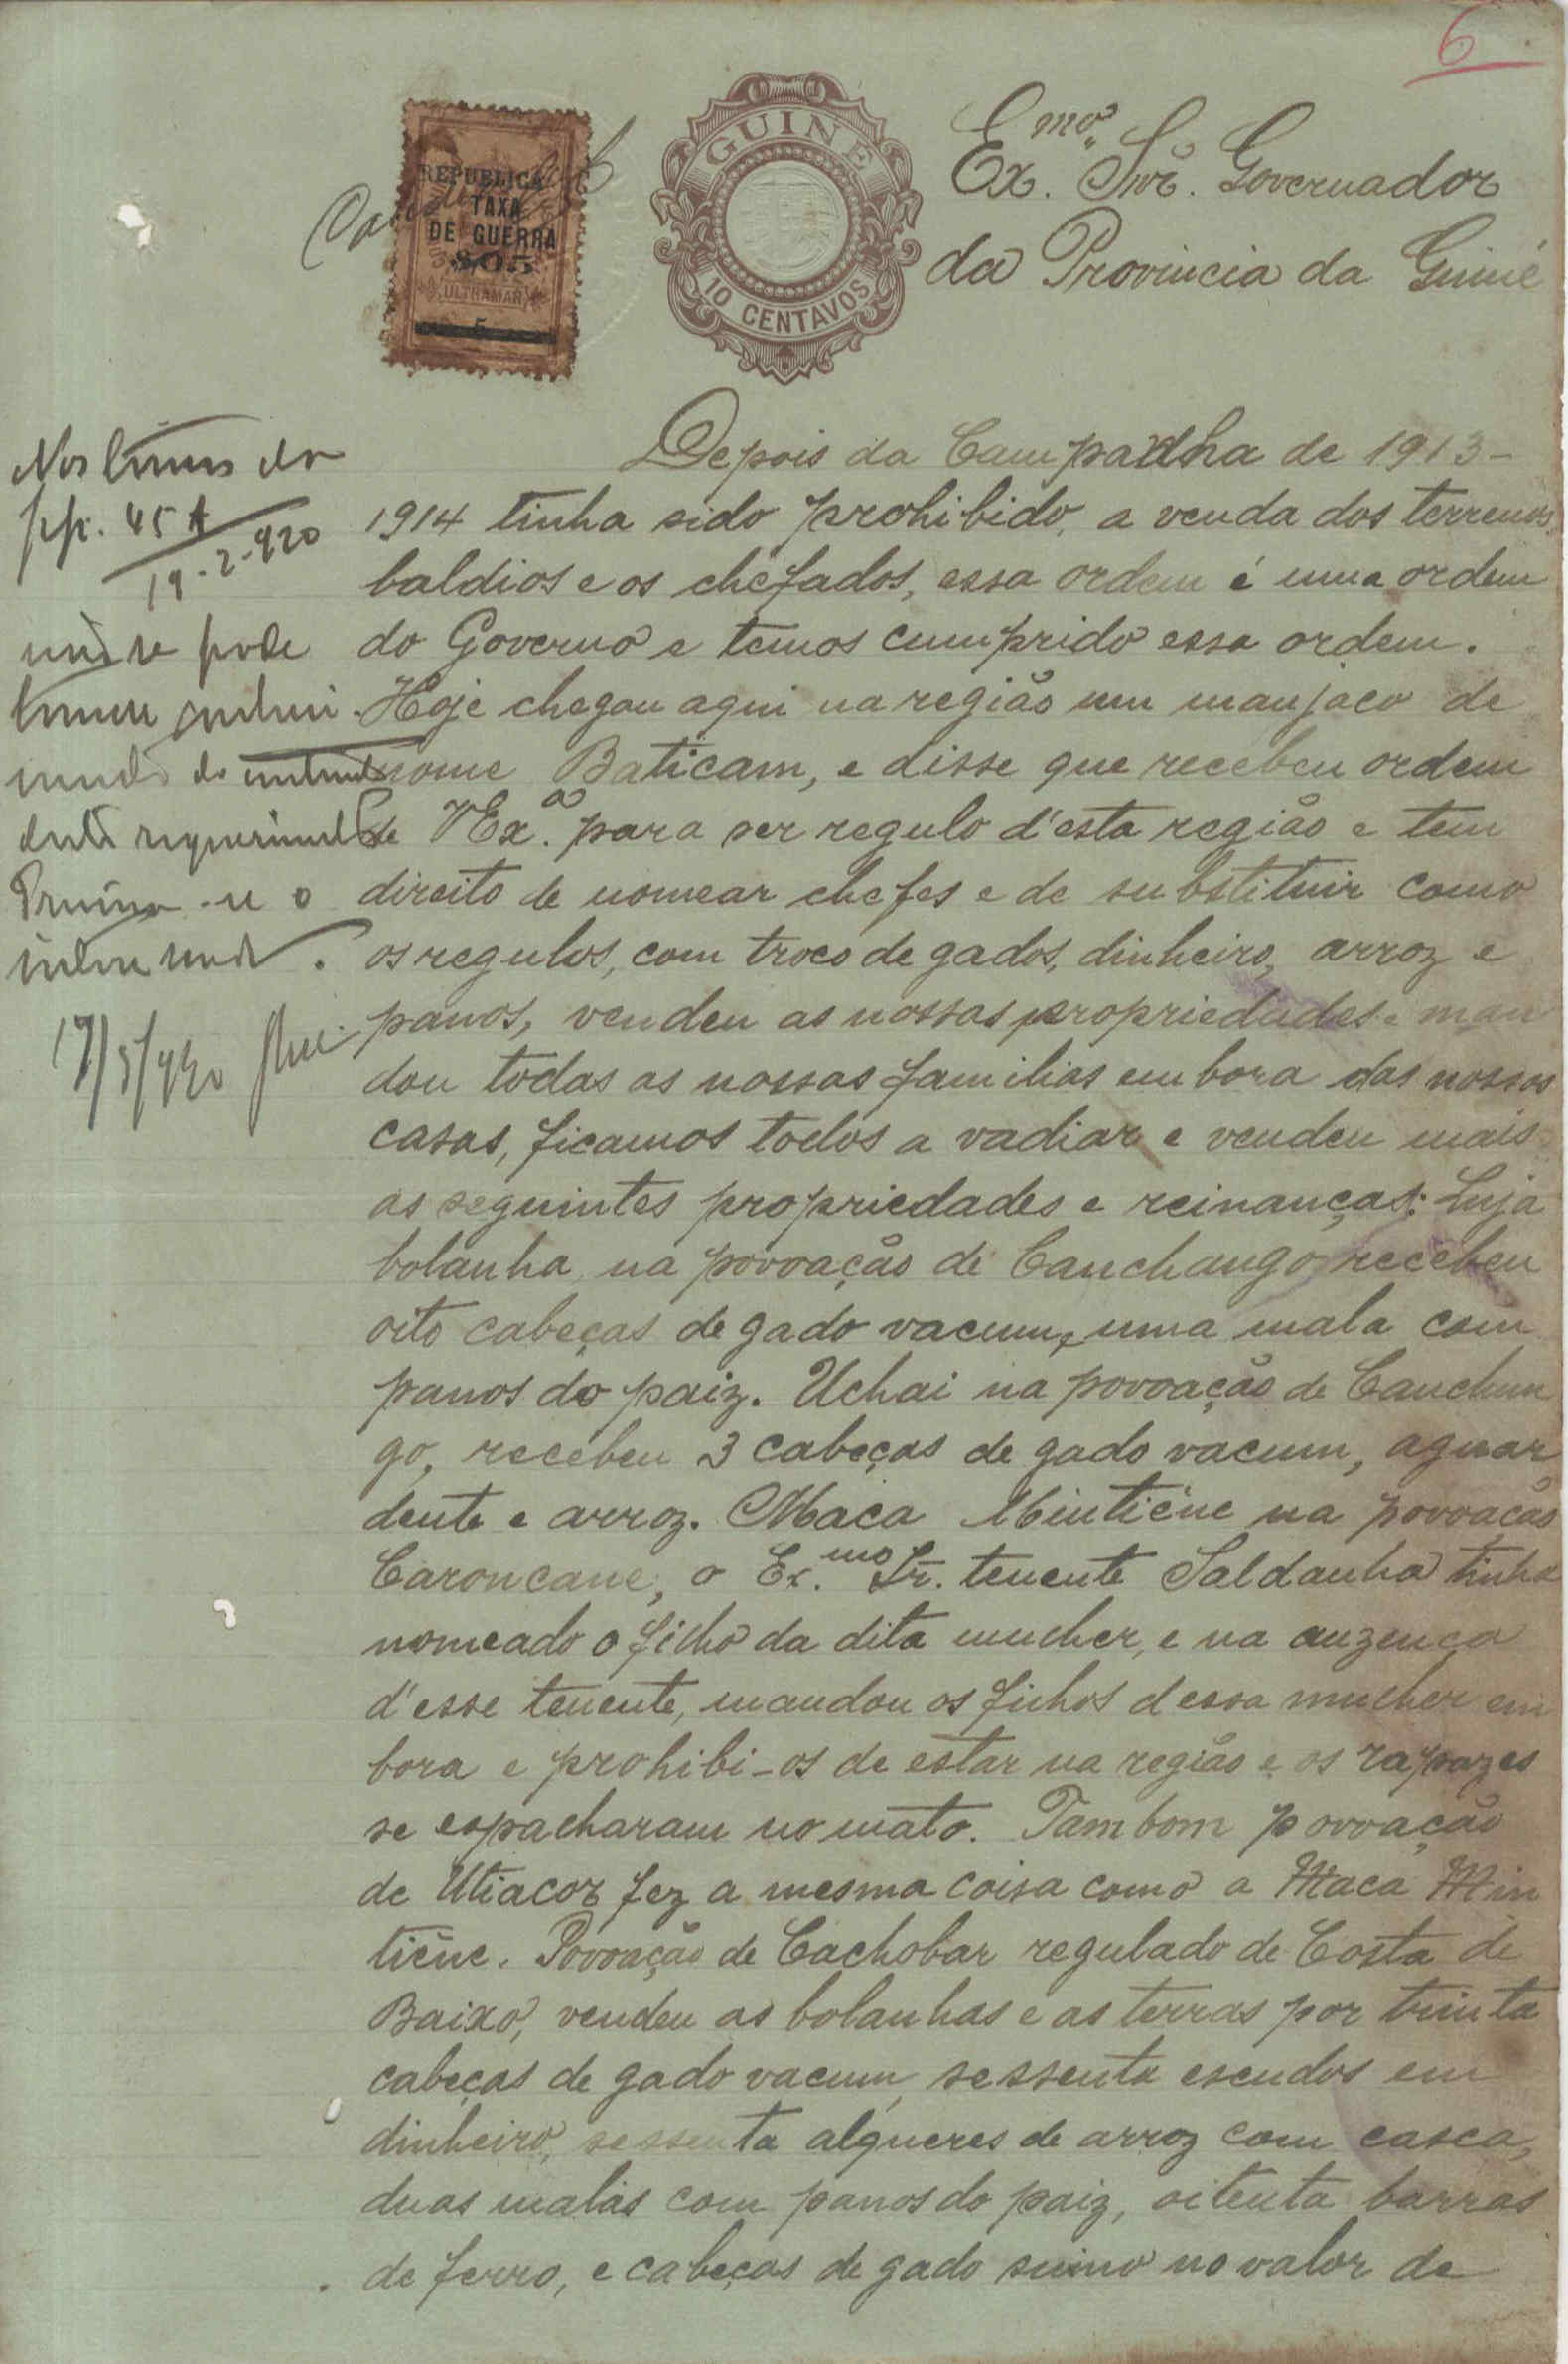 6
REPUBLICA
TAXA
DE GUERRA
$05
ULTRAMAR
5
GUINÉ
10 CENTAVOS
Ex.mo Snr. Governador
da Provincia da Guiné
Depois da Campanha de 1913-
1914 tinha sido prohibido, a venda dos terrenos
baldios e os chefados, essa ordem é uma ordem
do Governo e temos cumprido essa ordem.
Hoje chegou aqui na região um manjaco de
nome Baticam, e disse que recebeu ordem
de VEx.a para ser regulo d'esta região e tem
direito de nomear chefes e de substituir como
os regulos, com troco de gados, dinheiro, arroz e
panos, vendeu as nossas propriedades e man
dou todas as nossas familias embora das nossas
casas, ficamos todos a vadiar e vendeu mais
as seguintes propriedades e reinanças: Luja
bolanha na povoação de Canchango recebeu
oito cabeças de gado vacum, uma mala com
panos do paiz. Uchai na povoação de Canchun
go, recebeu 3 cabeças de gado vacum, aguar
dente e arroz. Maca Mintiéne na povoação
Caroncane, o Ex.mo Sr. tenente Saldanha tinha
nomeado o ficho da dita mucher, e na auzença
d'esse tenente, mandou os fichos dessa mucher em
bora e prohibi-os de estar na região e os rapazes
se espacharam no mato. Tambom povoação
de Utiacor fez a mesma coisa como a Maca Min
tiéne. Povoação de Cachobar regulado de Costa de
Baixo, vendeu as bolanhas e as terras por trinta
cabeças de gado vacum, sessenta escudos em
dinheiro, sessenta alqueres de arroz com casca,
duas malas com panos do paiz, oitenta barras
de ferro, e cabeças de gado suino no valor de
Nos termos do
45 A
19-2-920
não se pode
17/3/920